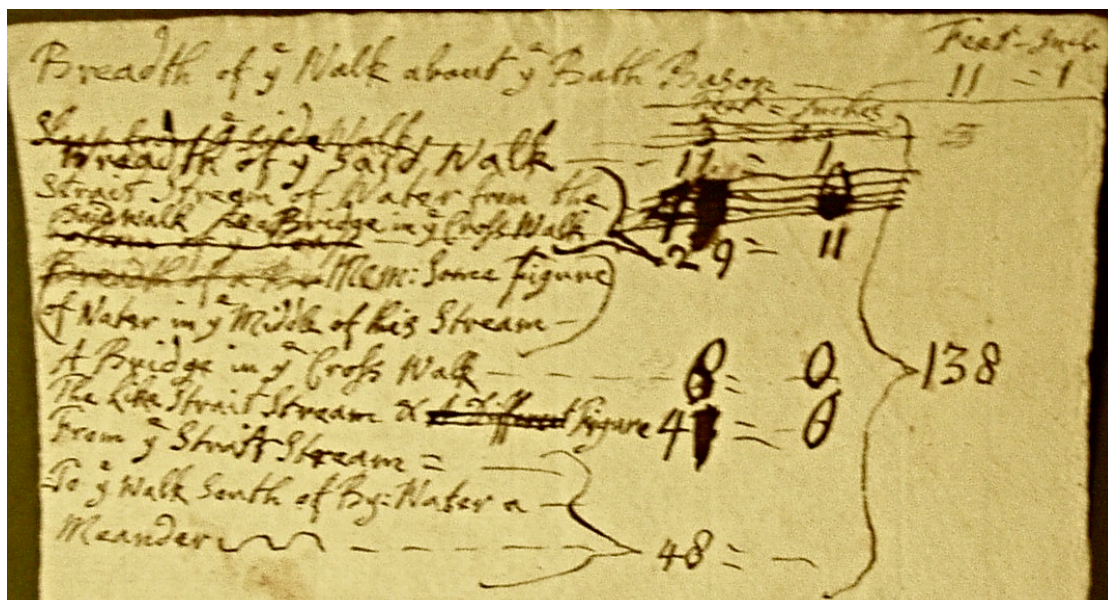 Feet - Inch
Breadth of yᵉ Walk about yᵉ Bath Bason — — 11 = 1
Feet = Inches
Breadth of yᵉ Said Walk — — 11 = 1
Strait Stream of Water from the
Said Walk to a Bridge in yᵉ Cross Walk
29 = 11
Mem: Some Figure
of Water in yᵉ Middle of this Stream —
A Bridge in yᵉ Cross Walk — — — 8 = 0
138
The Like Strait Stream & a different Figure 41 = 0
From yᵉ Strait Stream = —
To yᵉ Walk South of By: Water a —
Meander — — — — 48 = —